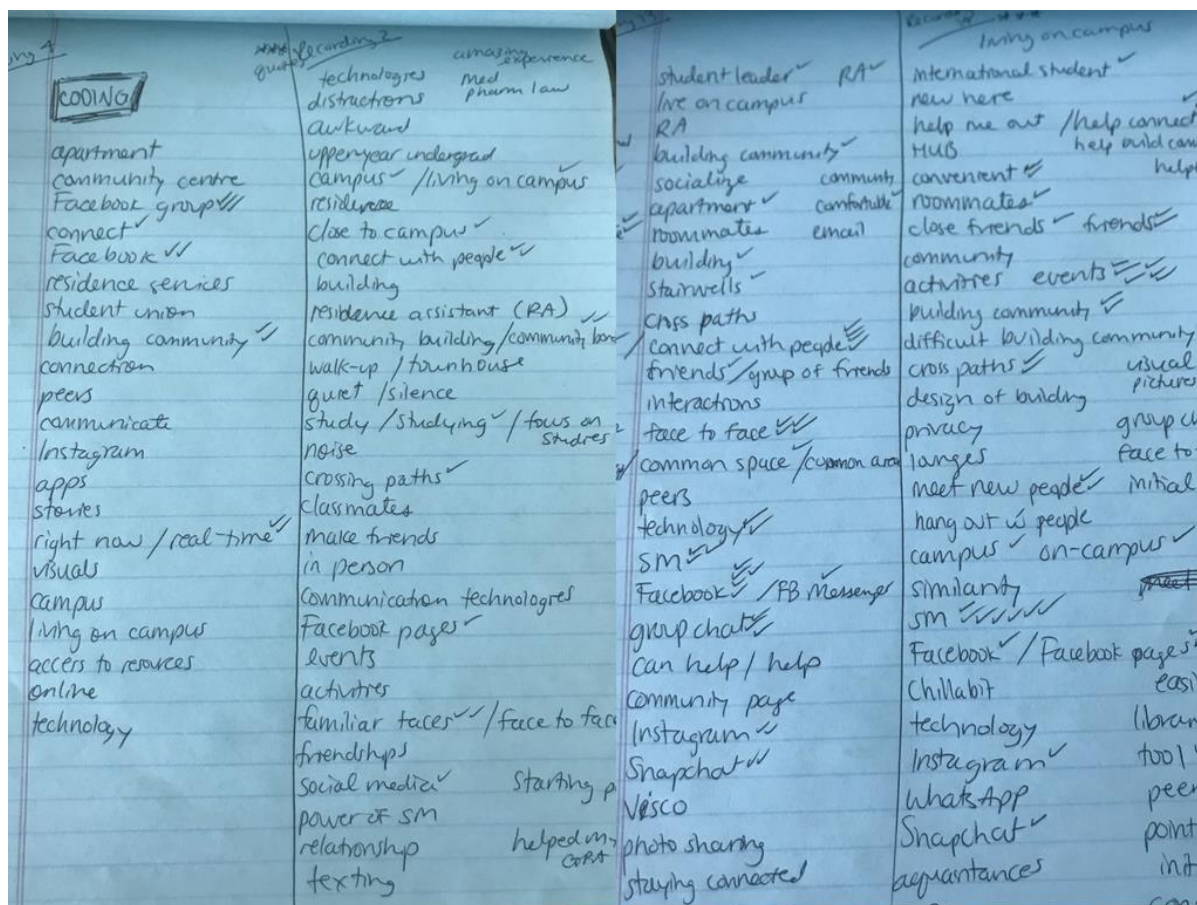 CODING
apartment
community centre
Facebook group
connect
Facebook
residence services
student union
building community
connection
peers
communicate
Instagram
apps
stories
right now / real-time
visuals
campus
living on campus
access to resources
online
technology
quotes Recording 2
amazing experience
technologies med
distractions pharm law
awkward
upperyear undergrad
campus / living on campus
residence
close to campus
connect with people
building
residence assistant (RA)
community building / community
walk-up / townhouse
quiet / silence
study / studying / focus on studies
noise
crossing paths
classmates
make friends
in person
communication technologies
Facebook pages
events
activities
familiar faces / face to fac
friendships
social media Starting p
power of SM
relationship helped m
texting
student leader RA
live on campus
RA
building community
socialize community
apartment comfortable
roommates email
building
stairwells
cross paths
connect with people
friends / group of friends
interactions
face to face
common space / common area
peers
technology
SM
Facebook / FB Messenger
group chat
can help / help
community page
Instagram
Snapchat
photo sharing
staying connected
living on campus
international student
new here
help me out / help connect
HUB help build com
convenient help
roommates
close friends friends
community
activities events
building community
difficult building community
cross paths visual
design of building pictures
privacy group ch
face to
meet new people initial
hang out w people
campus on-campus
similarity
SM
Facebook / Facebook pages
Chillabit easi
technology librar
Instagram tool
WhatsApp peer
Snapchat point
acquantances init